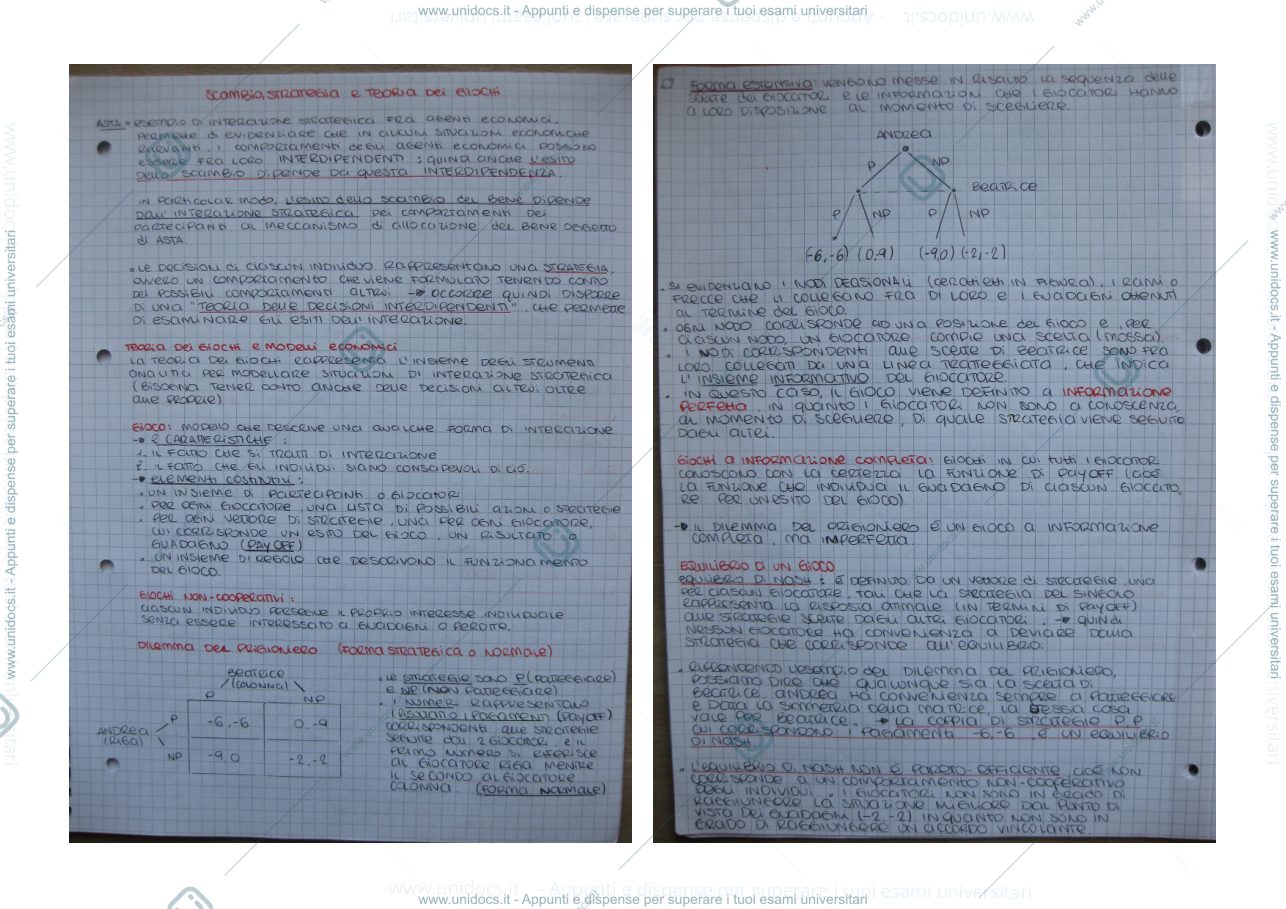 www.unidocs.it - Appunti e dispense per superare i tuoi esami universitari
SCAMBIO, STRATEGIA E TEORIA DEI GIOCHI
ASTA = ESEMPIO DI INTERAZIONE STRATEGICA FRA AGENTI ECONOMICI.
PERMETTE DI EVIDENZIARE CHE IN ALCUNI SITUAZIONI ECONOMICHE
RILEVANTI, I COMPORTAMENTI DEGLI AGENTI ECONOMICI POSSONO
ESSERE FRA LORO INTERDIPENDENTI: QUINDI ANCHE L'ESITO
DELLO SCAMBIO DIPENDE DA QUESTA INTERDIPENDENZA.
IN PARTICOLAR MODO, L'ESITO DELLO SCAMBIO DEL BENE DIPENDE
DALL'INTERAZIONE STRATEGICA DEI COMPORTAMENTI DEI
PARTECIPANTI AL MECCANISMO DI ALLOCAZIONE DEL BENE OGGETTO
DI ASTA.
• LE DECISIONI DI CIASCUN INDIVIDUO RAPPRESENTANO UNA STRATEGIA,
OVVERO UN COMPORTAMENTO CHE VIENE FORMULATO TENENDO CONTO
DEI POSSIBILI COMPORTAMENTI ALTRUI → OCCORRE QUINDI DISPORRE
DI UNA "TEORIA DELLE DECISIONI INTERDIPENDENTI", CHE PERMETTE
DI ESAMINARE GLI ESITI DELL'INTERAZIONE.
TEORIA DEI GIOCHI E MODELLI ECONOMICI
LA TEORIA DEI GIOCHI RAPPRESENTA L'INSIEME DEGLI STRUMENTI
ANALITICI PER MODELLARE SITUAZIONI DI INTERAZIONE STRATEGICA
(BISOGNA TENER CONTO ANCHE DELLE DECISIONI ALTRUI OLTRE
ALLE PROPRIE)
GIOCO: MODELLO CHE DESCRIVE UNA QUALCHE FORMA DI INTERAZIONE
→ 2 CARATTERISTICHE:
1. IL FATTO CHE SI TRATTI DI INTERAZIONE
2. IL FATTO CHE GLI INDIVIDUI SIANO CONSAPEVOLI DI CIÒ.
→ ELEMENTI COSTITUTIVI:
• UN INSIEME DI PARTECIPANTI O GIOCATORI
• PER OGNI GIOCATORE, UNA LISTA DI POSSIBILI AZIONI O STRATEGIE
• PER OGNI VETTORE DI STRATEGIE, UNA PER OGNI GIOCATORE,
CUI CORRISPONDE UN ESITO DEL GIOCO, UN RISULTATO O
GUADAGNO (PAY OFF)
• UN INSIEME DI REGOLE CHE DESCRIVONO IL FUNZIONAMENTO
DEL GIOCO.
GIOCHI NON-COOPERATIVI:
CIASCUN INDIVIDUO PERSEGUE IL PROPRIO INTERESSE INDIVIDUALE
SENZA ESSERE INTERESSATO A GUADAGNI O PERDITE.
DILEMMA DEL PRIGIONIERO (FORMA STRATEGICA O NORMALE)
BEATRICE
(COLONNA)
P NP
ANDREA
(RIGA)
P -6,-6 0,-9
NP -9,0 -2,-2
• LE STRATEGIE SONO P (PATTEGGIARE)
E NP (NON PATTEGGIARE)
• I NUMERI RAPPRESENTANO
I RISULTATI I PAGAMENTI (PAYOFF)
CORRISPONDENTI ALLE STRATEGIE
SEGUITE DAI 2 GIOCATORI, E IL
PRIMO NUMERO SI RIFERISCE
AL GIOCATORE RIGA MENTRE
IL SECONDO AL GIOCATORE
COLONNA. (FORMA NORMALE)
FORMA ESTENSIVA: VENGONO MESSE IN RISALTO LA SEQUENZA DELLE
SCELTE DEI GIOCATORI E LE INFORMAZIONI CHE I GIOCATORI HANNO
A LORO DISPOSIZIONE AL MOMENTO DI SCEGLIERE.
ANDREA
P NP
BEATRICE
P NP P NP
(-6,-6) (0,9) (-9,0) (-2,-2)
• SI EVIDENZIANO I NODI DECISIONALI (CERCHIETTI IN FIGURA), I RAMI O
FRECCE CHE LI COLLEGANO FRA DI LORO E I GUADAGNI OTTENUTI
AL TERMINE DEL GIOCO.
• OGNI NODO CORRISPONDE AD UNA POSIZIONE DEL GIOCO E, PER
CIASCUN NODO, UN GIOCATORE COMPIE UNA SCELTA (MOSSA).
• I NODI CORRISPONDENTI ALLE SCELTE DI BEATRICE SONO FRA
LORO COLLEGATI DA UNA LINEA TRATTEGGIATA, CHE INDICA
L'INSIEME INFORMATIVO DEL GIOCATORE.
• IN QUESTO CASO, IL GIOCO VIENE DEFINITO A INFORMAZIONE
PERFETTA, IN QUANTO I GIOCATORI NON SONO A CONOSCENZA,
AL MOMENTO DI SCEGLIERE, DI QUALE STRATEGIA VIENE SEGUITA
DAGLI ALTRI.
GIOCHI A INFORMAZIONE COMPLETA: GIOCHI IN CUI TUTTI I GIOCATORI
CONOSCONO CON LA CERTEZZA LA FUNZIONE DI PAYOFF (CIOÈ
LA FUNZIONE CHE INDIVIDUA IL GUADAGNO DI CIASCUN GIOCATO
RE PER UN ESITO DEL GIOCO).
→ IL DILEMMA DEL PRIGIONIERO È UN GIOCO A INFORMAZIONE
COMPLETA, MA IMPERFETTA.
EQUILIBRIO DI UN GIOCO
EQUILIBRIO DI NASH: È DEFINITO DA UN VETTORE DI STRATEGIE, UNA
PER CIASCUN GIOCATORE, TALI CHE LA STRATEGIA DEL SINGOLO
RAPPRESENTA LA RISPOSTA OTTIMALE (IN TERMINI DI PAYOFF)
ALLE STRATEGIE SCELTE DAGLI ALTRI GIOCATORI. → QUINDI
NESSUN GIOCATORE HA CONVENIENZA A DEVIARE DALLA
STRATEGIA CHE CORRISPONDE ALL'EQUILIBRIO.
• RIPRENDENDO L'ESEMPIO DEL DILEMMA DEL PRIGIONIERO,
POSSIAMO DIRE CHE QUALUNQUE SIA LA SCELTA DI
BEATRICE, ANDREA HA CONVENIENZA SEMPRE A PATTEGGIARE
E DATA LA SIMMETRIA DELLA MATRICE, LA STESSA COSA
VALE PER BEATRICE. → LA COPPIA DI STRATEGIE P,P
CUI CORRISPONDONO I PAGAMENTI -6,-6, È UN EQUILIBRIO
DI NASH.
• L'EQUILIBRIO DI NASH NON È PARETO-EFFICIENTE, CIOÈ NON
CORRISPONDE A UN COMPORTAMENTO NON-COOPERATIVO
DEGLI INDIVIDUI. I GIOCATORI NON SONO IN GRADO DI
RAGGIUNGERE LA SITUAZIONE MIGLIORE DAL PUNTO DI
VISTA DEI GUADAGNI (-2,-2) IN QUANTO NON SONO IN
GRADO DI RAGGIUNGERE UN ACCORDO VINCOLANTE.
www.unidocs.it - Appunti e dispense per superare i tuoi esami universitari
www.unidocs.it - Appunti e dispense per superare i tuoi esami universitari
www.unidocs.it - Appunti e dispense per superare i tuoi esami universitari